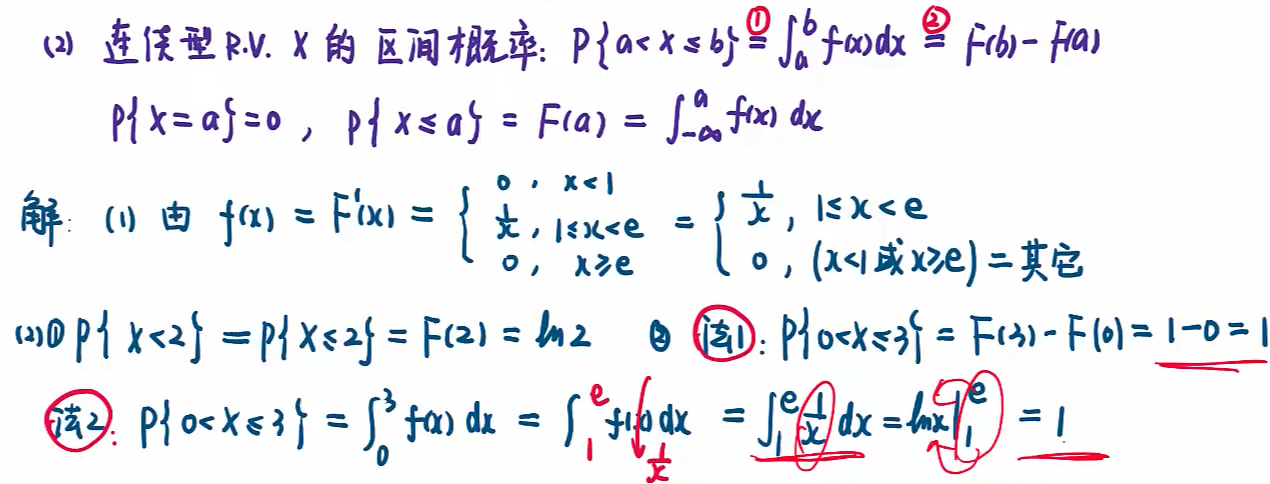 (2) 连续型 R.V. X 的 区间概率: P{a<X≤b} ①= ∫_a^b f(x)dx ②= F(b)-F(a)
P{X=a}=0 , P{X≤a} = F(a) = ∫_{-∞}^a f(x) dx
解: (1) 由 f(x) = F'(x) = { 0, x<1 ; 1/x, 1≤x<e ; 0, x≥e = { 1/x, 1≤x<e ; 0, (x<1或x≥e)=其它
(2)① P{X<2} = P{X≤2} = F(2) = ln2 ② 法1: P{0<X≤3} = F(3)-F(0) = 1-0 = 1
法2: P{0<X≤3} = ∫_0^3 f(x) dx = ∫_1^e f(x) dx = ∫_1^e 1/x dx = lnx|_1^e = 1
1/x